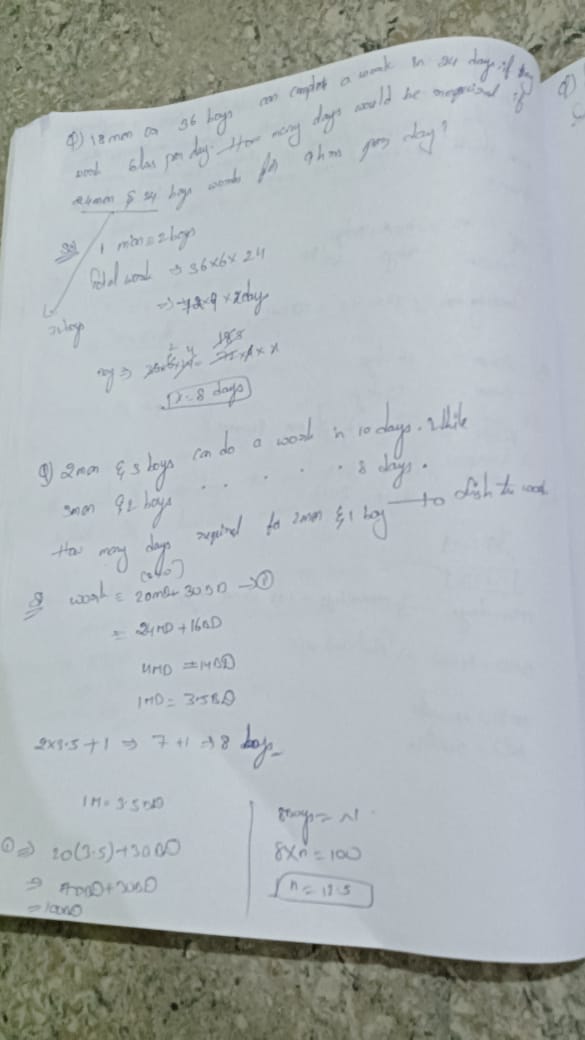 Q) 18 men or 36 boys can complete a work in 24 days if they
work 6 hrs per day. How many days would be required if
24 men & 24 boys works for 9 hrs per day?
1 man = 2 boys
Total work ⇒ 36×6×24
⇒ 72×9×x days
72 boys
x = 8 days
Q) 2 men & 3 boys can do a work in 10 days. While
3 men & 2 boys . . . . . 8 days.
How many days required for 2 men & 1 boy to finish the work
work = 20MD + 30BD → ①
= 24MD + 16BD
4MD = 14BD
1MD = 3.5BD
2×3.5+1 ⇒ 7+1 ⇒ 8 boys
1M = 3.5BD
① ⇒ 20(3.5)+30BD
⇒ 70BD+30BD
= 100BD
8 boys = N
8×n = 100
n = 12.5